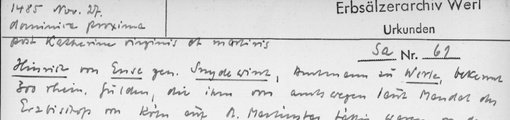 1485 Nov. 27.
dominica proxima
post Katherine virginis et martiris
Erbsälzerarchiv Werl
Urkunden
Sa Nr. 61
Hinrich von Ense gen. Snydewint, Amtmann zu Werle, bekennt
300 rhein. Gulden, die ihm von amtswegen laut Mandat des
Erzbischofs von Köln auf